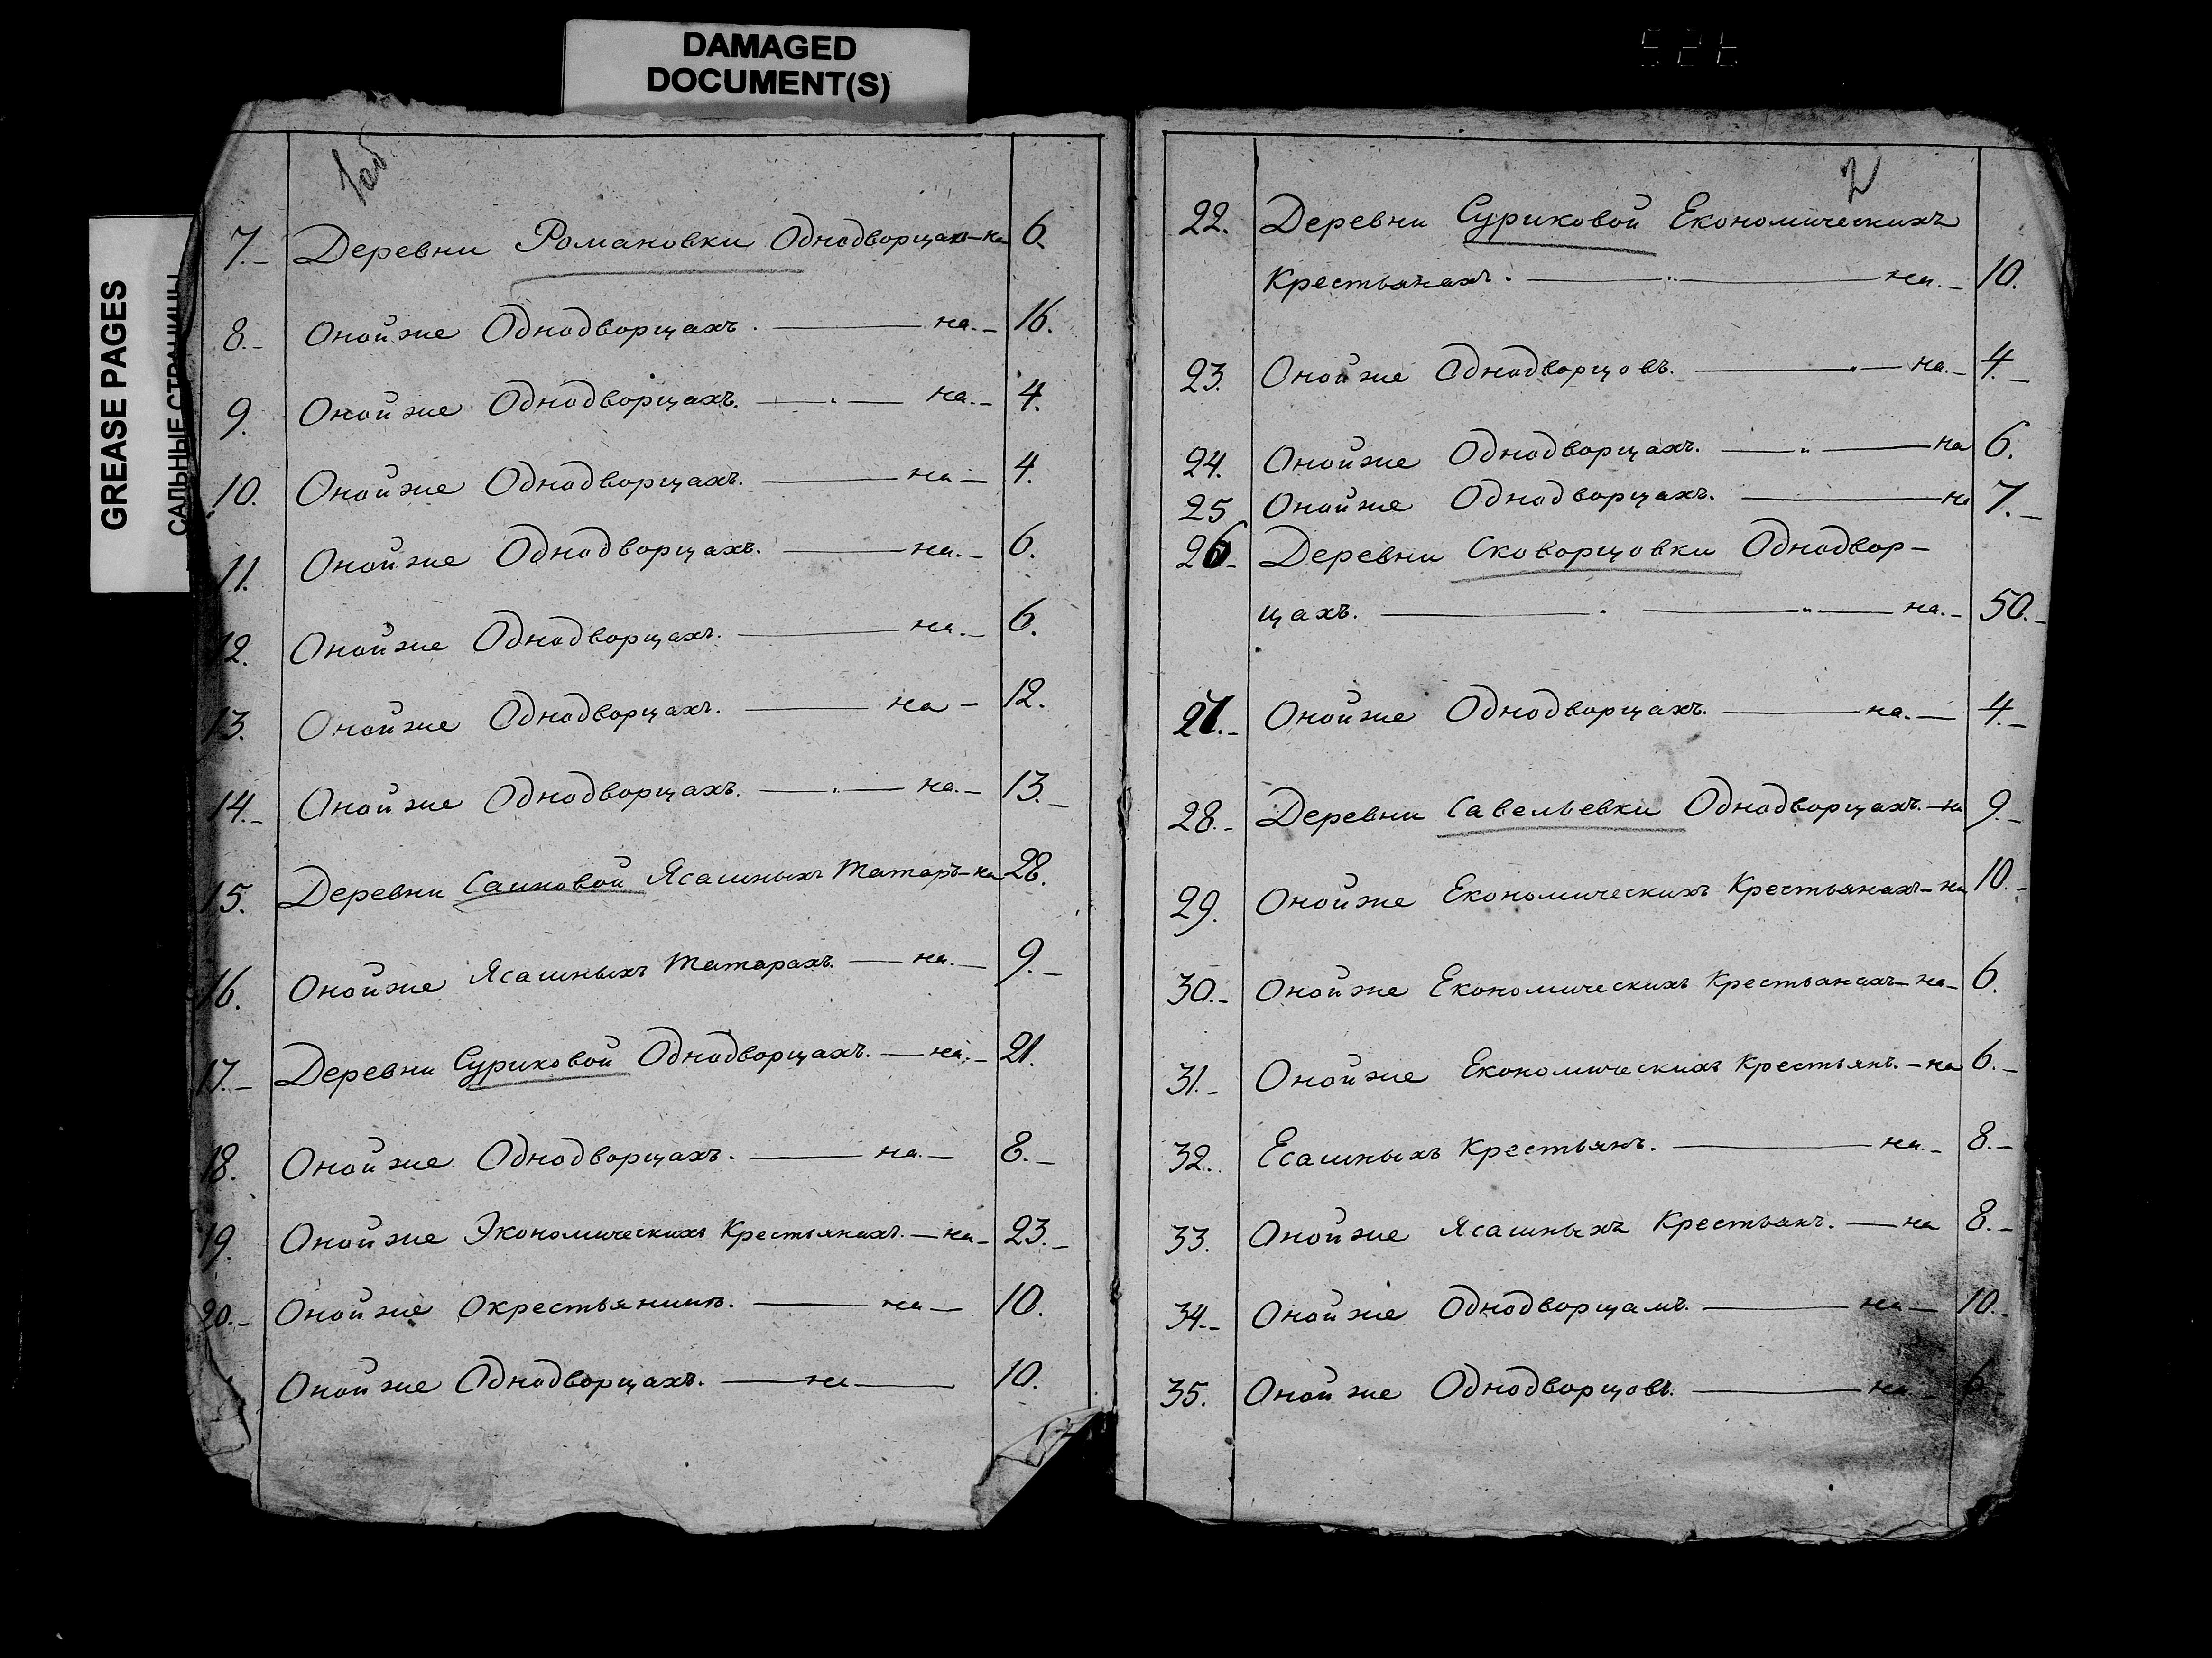 DAMAGED
DOCUMENT(S)
GREASE PAGES
САЛЬНЫЕ СТРАНИЦЫ
1об
7.– Деревни Романовки Однодворцахъ – на 6.
8.– Оной же Однодворцахъ. — на.– 16.
9. Оной же Однодворцахъ. — на.– 4.
10. Оной же Однодворцахъ. — на – 4.
11. Оной же Однодворцахъ. — на.– 6.
12. Оной же Однодворцахъ. — на.– 6.
13. Оной же Однодворцахъ. — на – 12.
14.– Оной же Однодворцахъ. — на.– 13.–
15. Деревни Саиновой Ясашныхъ Татаръ – на 28.
16. Оной же Ясашныхъ Татарахъ. — на.– 9.–
17.– Деревни Суриковой Однодворцахъ. — на.– 21.
18. Оной же Однодворцахъ. — на.– 8.–
19. Оной же Экономическихъ Крестьянахъ. – на – 23.–
20.– Оной же Окрестьянинъ. — на – 10.
Оной же Однодворцахъ. — на — 10.
2
22. Деревни Суриковой Економическихъ
Крестьянахъ. — на.– 10.
23. Оной же Однодворцовъ. — на.– 4.–
24. Оной же Однодворцахъ. — на 6.
25 Оной же Однодворцахъ. — на 7.–
26– Деревни Скворцовки Однодвор–
цахъ. — на.– 50.–
27.– Оной же Однодворцахъ. — на.– 4.–
28.– Деревни Савельевки Однодворцахъ. – на 9.–
29. Оной же Економическихъ Крестьянахъ – на 10.–
30.– Оной же Економическихъ Крестьянахъ – на – 6.
31.– Оной же Економическихъ Крестьянъ. – на 6.–
32. Есашныхъ Крестьянъ. — на.– 8.–
33. Оной же Ясашныхъ Крестьянъ. — на 8.–
34.– Оной же Однодворцамъ. — на – 10.–
35. Оной же Однодворцовъ. — на.– 6